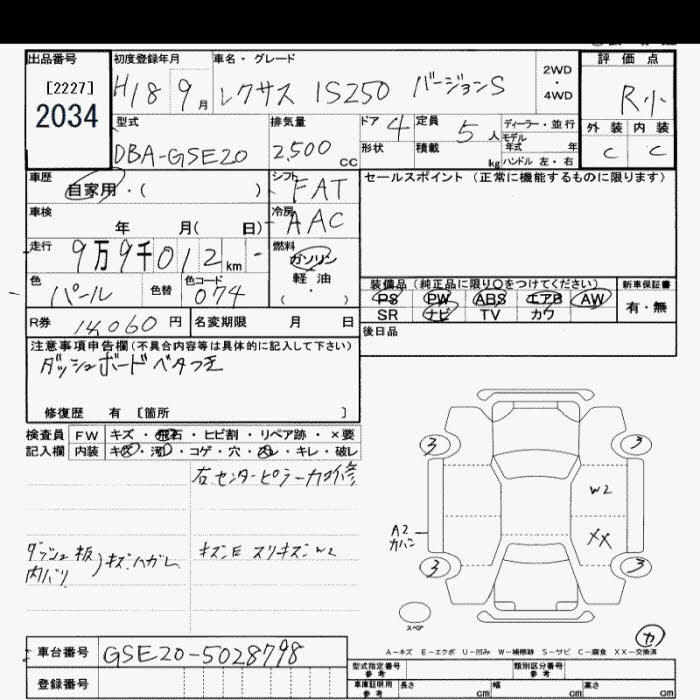 出品番号 初度登録年月 車名・グレード 評価点
[2227] 2034
H18 9月 レクサス IS250 バージョンS 2WD・4WD R小
外装 内装
C C
型式 排気量 ドア 定員 ディーラー・並行
DBA-GSE20 2,500cc 4 5人 モデル年式 年
形状 積載 kg ハンドル 左・右
車歴 自家用・( ) シフト FAT
セールスポイント (正常に機能するものに限ります)
車検 年 月( 日) 冷房 AAC
走行 9万9千012km 燃料 ガソリン 軽油・( )
色 パール 色替 色コード 074
装備品 (純正品に限り○をつけてください) 新車保証書
PS PW ABS エアB AW 有・無
SR ナビ TV カワ
R券 14,060円 名変期限 月 日
後日品
注意事項申告欄(不具合内容等は具体的に記入して下さい)
ダッシュボードベタつき
修復歴 有 [箇所 ]
検査員 FW キズ・飛石・ヒビ割・リペア跡・×要
記入欄 内装 キズ・汚・コゲ・穴・スレ・キレ・破レ
右センターピラー加修
ダッシュ板 内バリ )キズハガレ
キズE スリキズW2
3 3
W2
A2 カハン
XX
3 3
スペア
カ
A-キズ E-エクボ U-凹み W-補修跡 S-サビ C-腐食 XX-交換済
車台番号 GSE20-5028798
登録番号
型式指定番号 参考 類別区分番号 参考
車庫証明用 参考 長さ cm 幅 cm 高さ cm